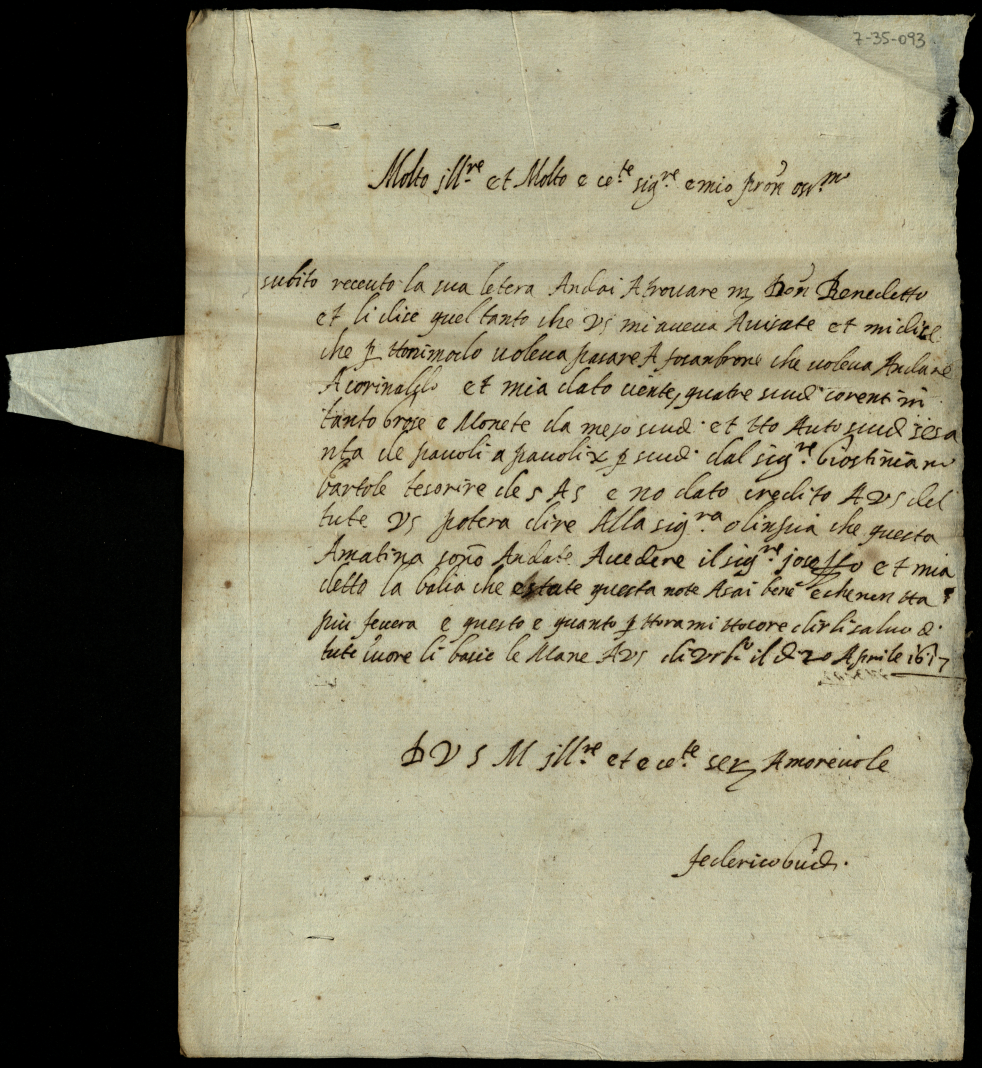 7-35-093
Molto jll.re et Molto e ce.te sig.re e mio pron oss.mo
subito receuto la sua letera Andai A trouare m Don Benedetto
et li dise quel tanto che VS mi aueua Auisate et mi dise
che p ttonimodo uoleua pasare A fosanbrone che uoleua Andare
A corinaldo et mia dato uente quatre scud corenti in
tanto brase e Monete da mezo scud. et tto Auto scud sesa
nta de pauoli a pauoli x p scud. dal sig.re Giostiniano
bartole tesorire de s As e no dato credito A VS del
tute VS potera dire Alla sig.ra olinpia che questa
Amatina sono Andate Auedere il sig.re joseffo et mia
detto la balia che estate questa note Asai bene e che non tta
più feuera e questo e quanto p ttora mi ttocore dirli saluo d.
tute cuore li bacio le Mane A VS di Vrb.o il d 20 Aprile 1617
D V S M jll.re et e ce.te ser Amoreuole
federico